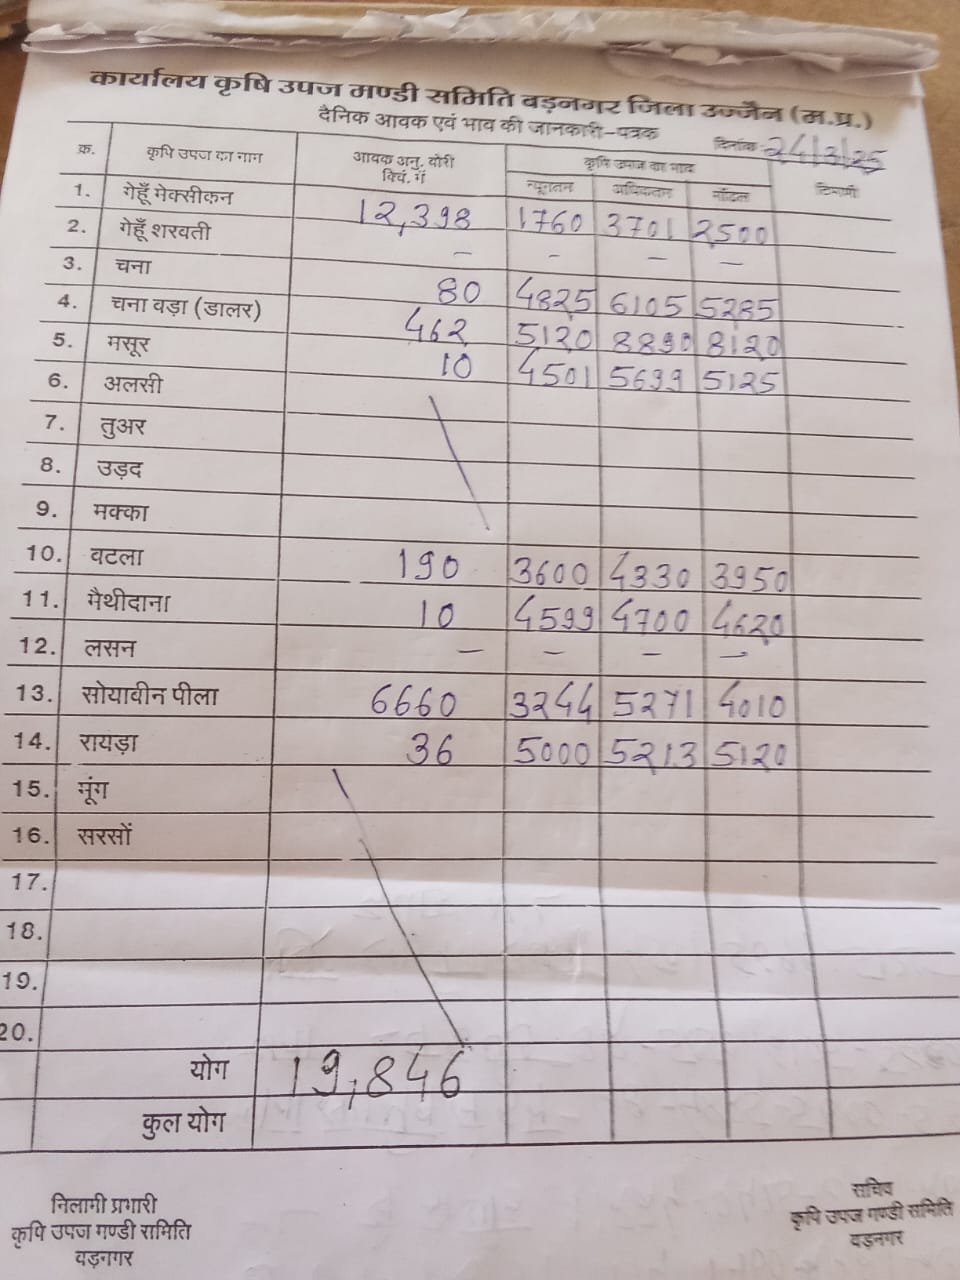 कार्यालय कृषि उपज मण्डी समिति बड़नगर जिला उज्जैन (म.प्र.)
दैनिक आवक एवं भाव की जानकारी-पत्रक
दिनांक 24/3/25
क्र. कृषि उपज का नाम आवक अनु. बोरी क्विं. में कृषि उपज का भाव टिप्पणी
न्यूनतम अधिकतम मॉडल
1. गेहूँ मेक्सीकन 12,398 1760 3701 2500
2. गेहूँ शरवती – – – –
3. चना 80 4825 6105 5285
4. चना वड़ा (डालर) 462 5120 8890 8120
5. मसूर 10 4501 5699 5125
6. अलसी
7. तुअर
8. उड़द
9. मक्का
10. वटला 190 3600 4330 3950
11. मैथीदाना 10 4599 4700 4620
12. लसन – – – –
13. सोयावीन पीला 6660 3244 5271 4010
14. रायड़ा 36 5000 5213 5120
15. मूंग
16. सरसों
17.
18.
19.
20.
योग 19,846
कुल योग
निलामी प्रभारी
कृषि उपज मण्डी समिति
वड़नगर
सचिव
कृषि उपज मण्डी समिति
वड़नगर